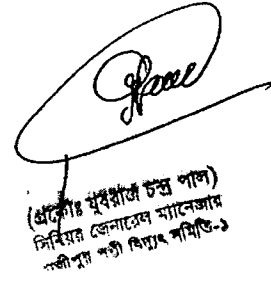 (প্রকৌঃ যুবরাজ চন্দ্র পাল)
সিনিয়র জেনারেল ম্যানেজার
গাজীপুর পল্লী বিদ্যুৎ সমিতি-১